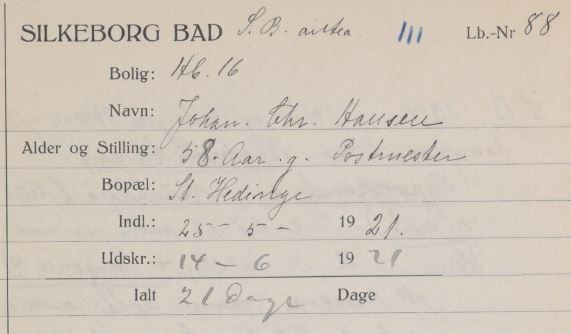 SILKEBORG BAD S. B. III Lb.-Nr 88
Bolig: Hb. 16
Navn: Johan. Chr. Hansen
Alder og Stilling: 58. Aar. g. Postmester
Bopæl: St. Hedinge
Indl.: 25 - 5 - 1921.
Udskr.: 14 - 6 1921
Ialt 21 Dage Dage